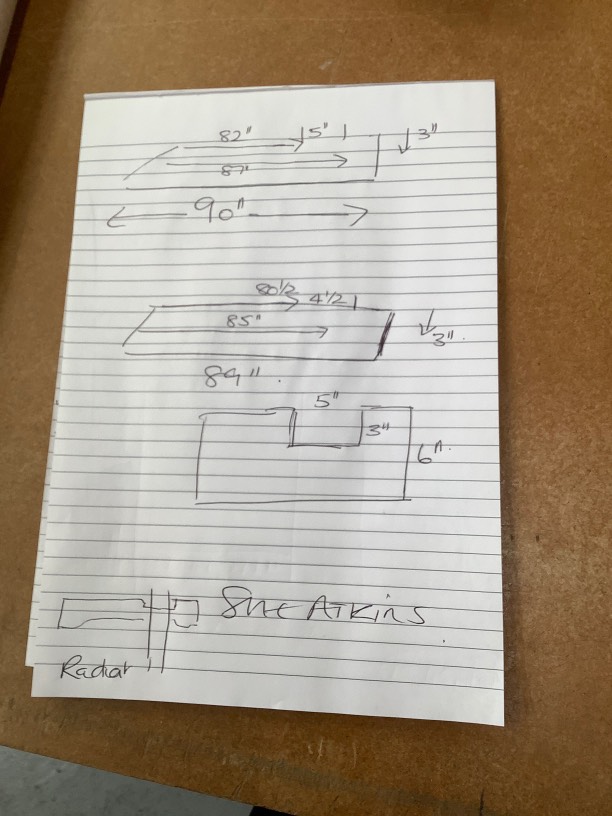 82" 5" 3"
87"
90"
80 1/2 4 1/2
85" 3"
89"
5"
3"
6"
SUE ATKINS
Radiat